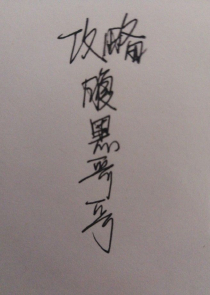 攻略
腹
黑
哥
哥